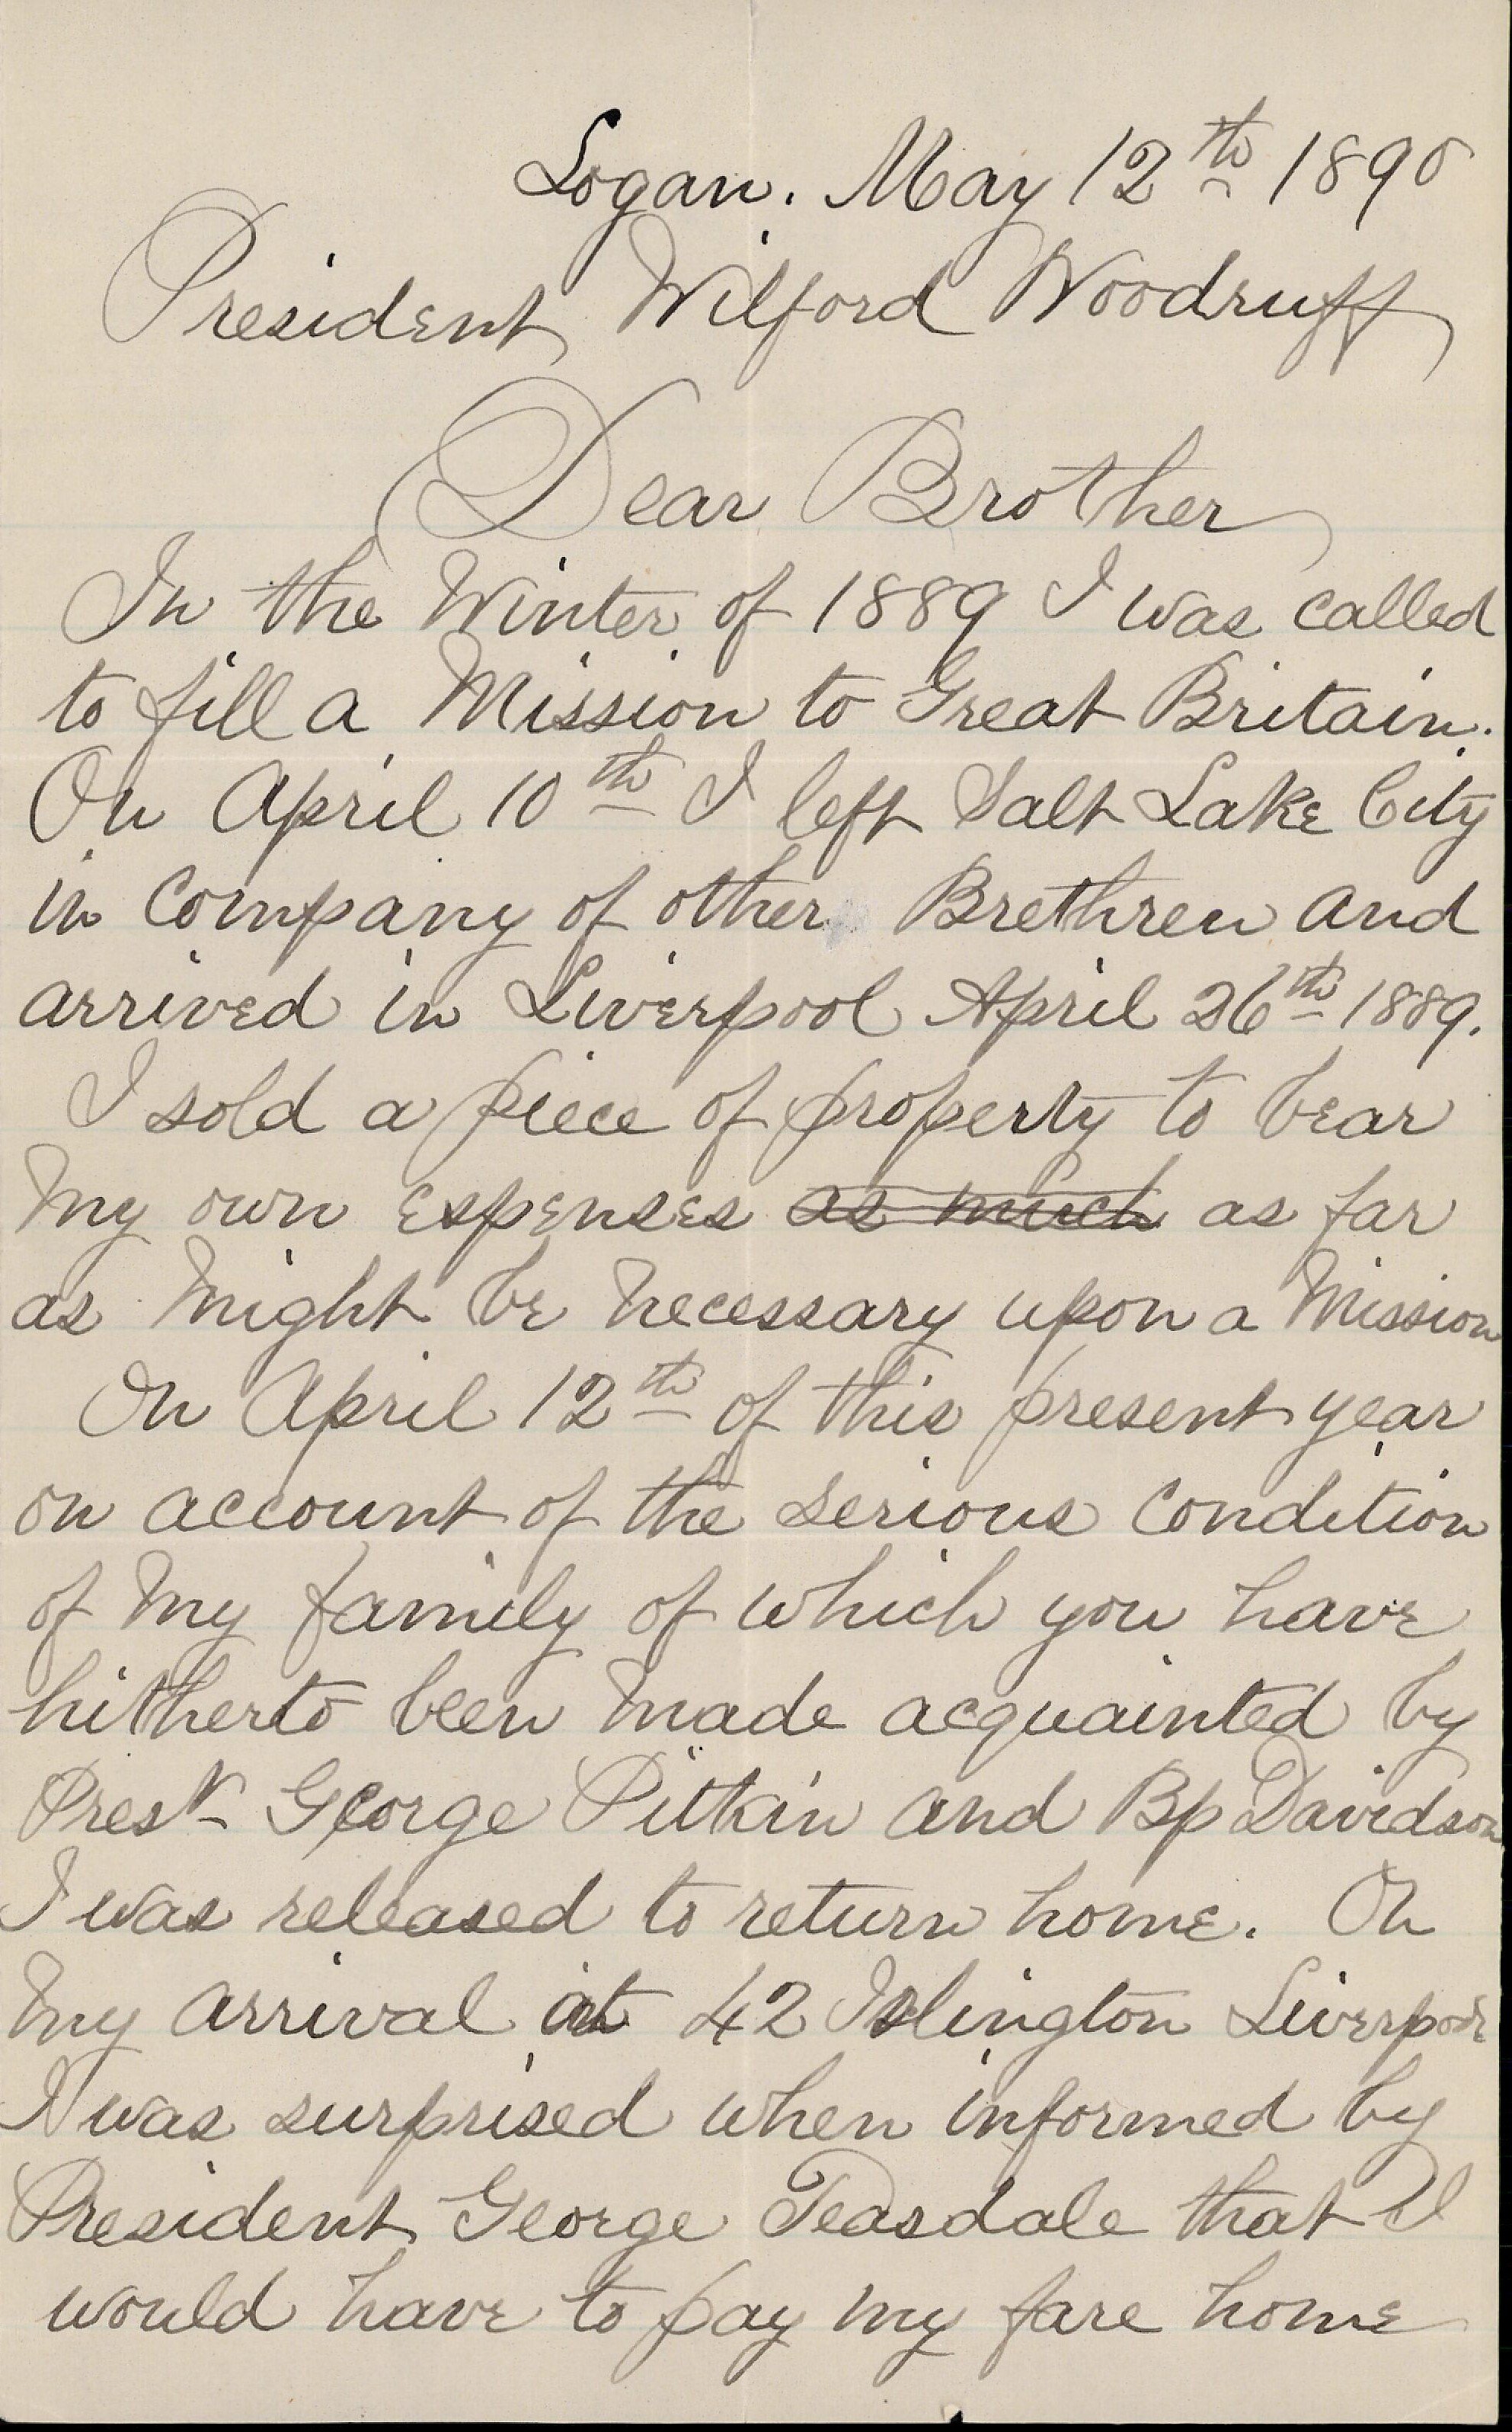 Logan. May 12th 1890
President Wilford Woodruff
Dear Brother
In the Winter of 1889 I was called
to fill a Mission to Great Britain.
On April 10th I left Salt Lake City
in Company of other Brethren and
arrived in Liverpool April 26th 1889.
I sold a piece of property to bear
my own expenses as much as far
as might be necessary upon a Mission
On April 12th of this present year
on account of the serious condition
of my family of which you have
hitherto been made acquainted by
Prest George Pitkin and Bp Davidson
I was released to return home. On
my arrival at 42 Islington Liverpool
I was surprised when informed by
President George Teasdale that I
would have to pay my fare home